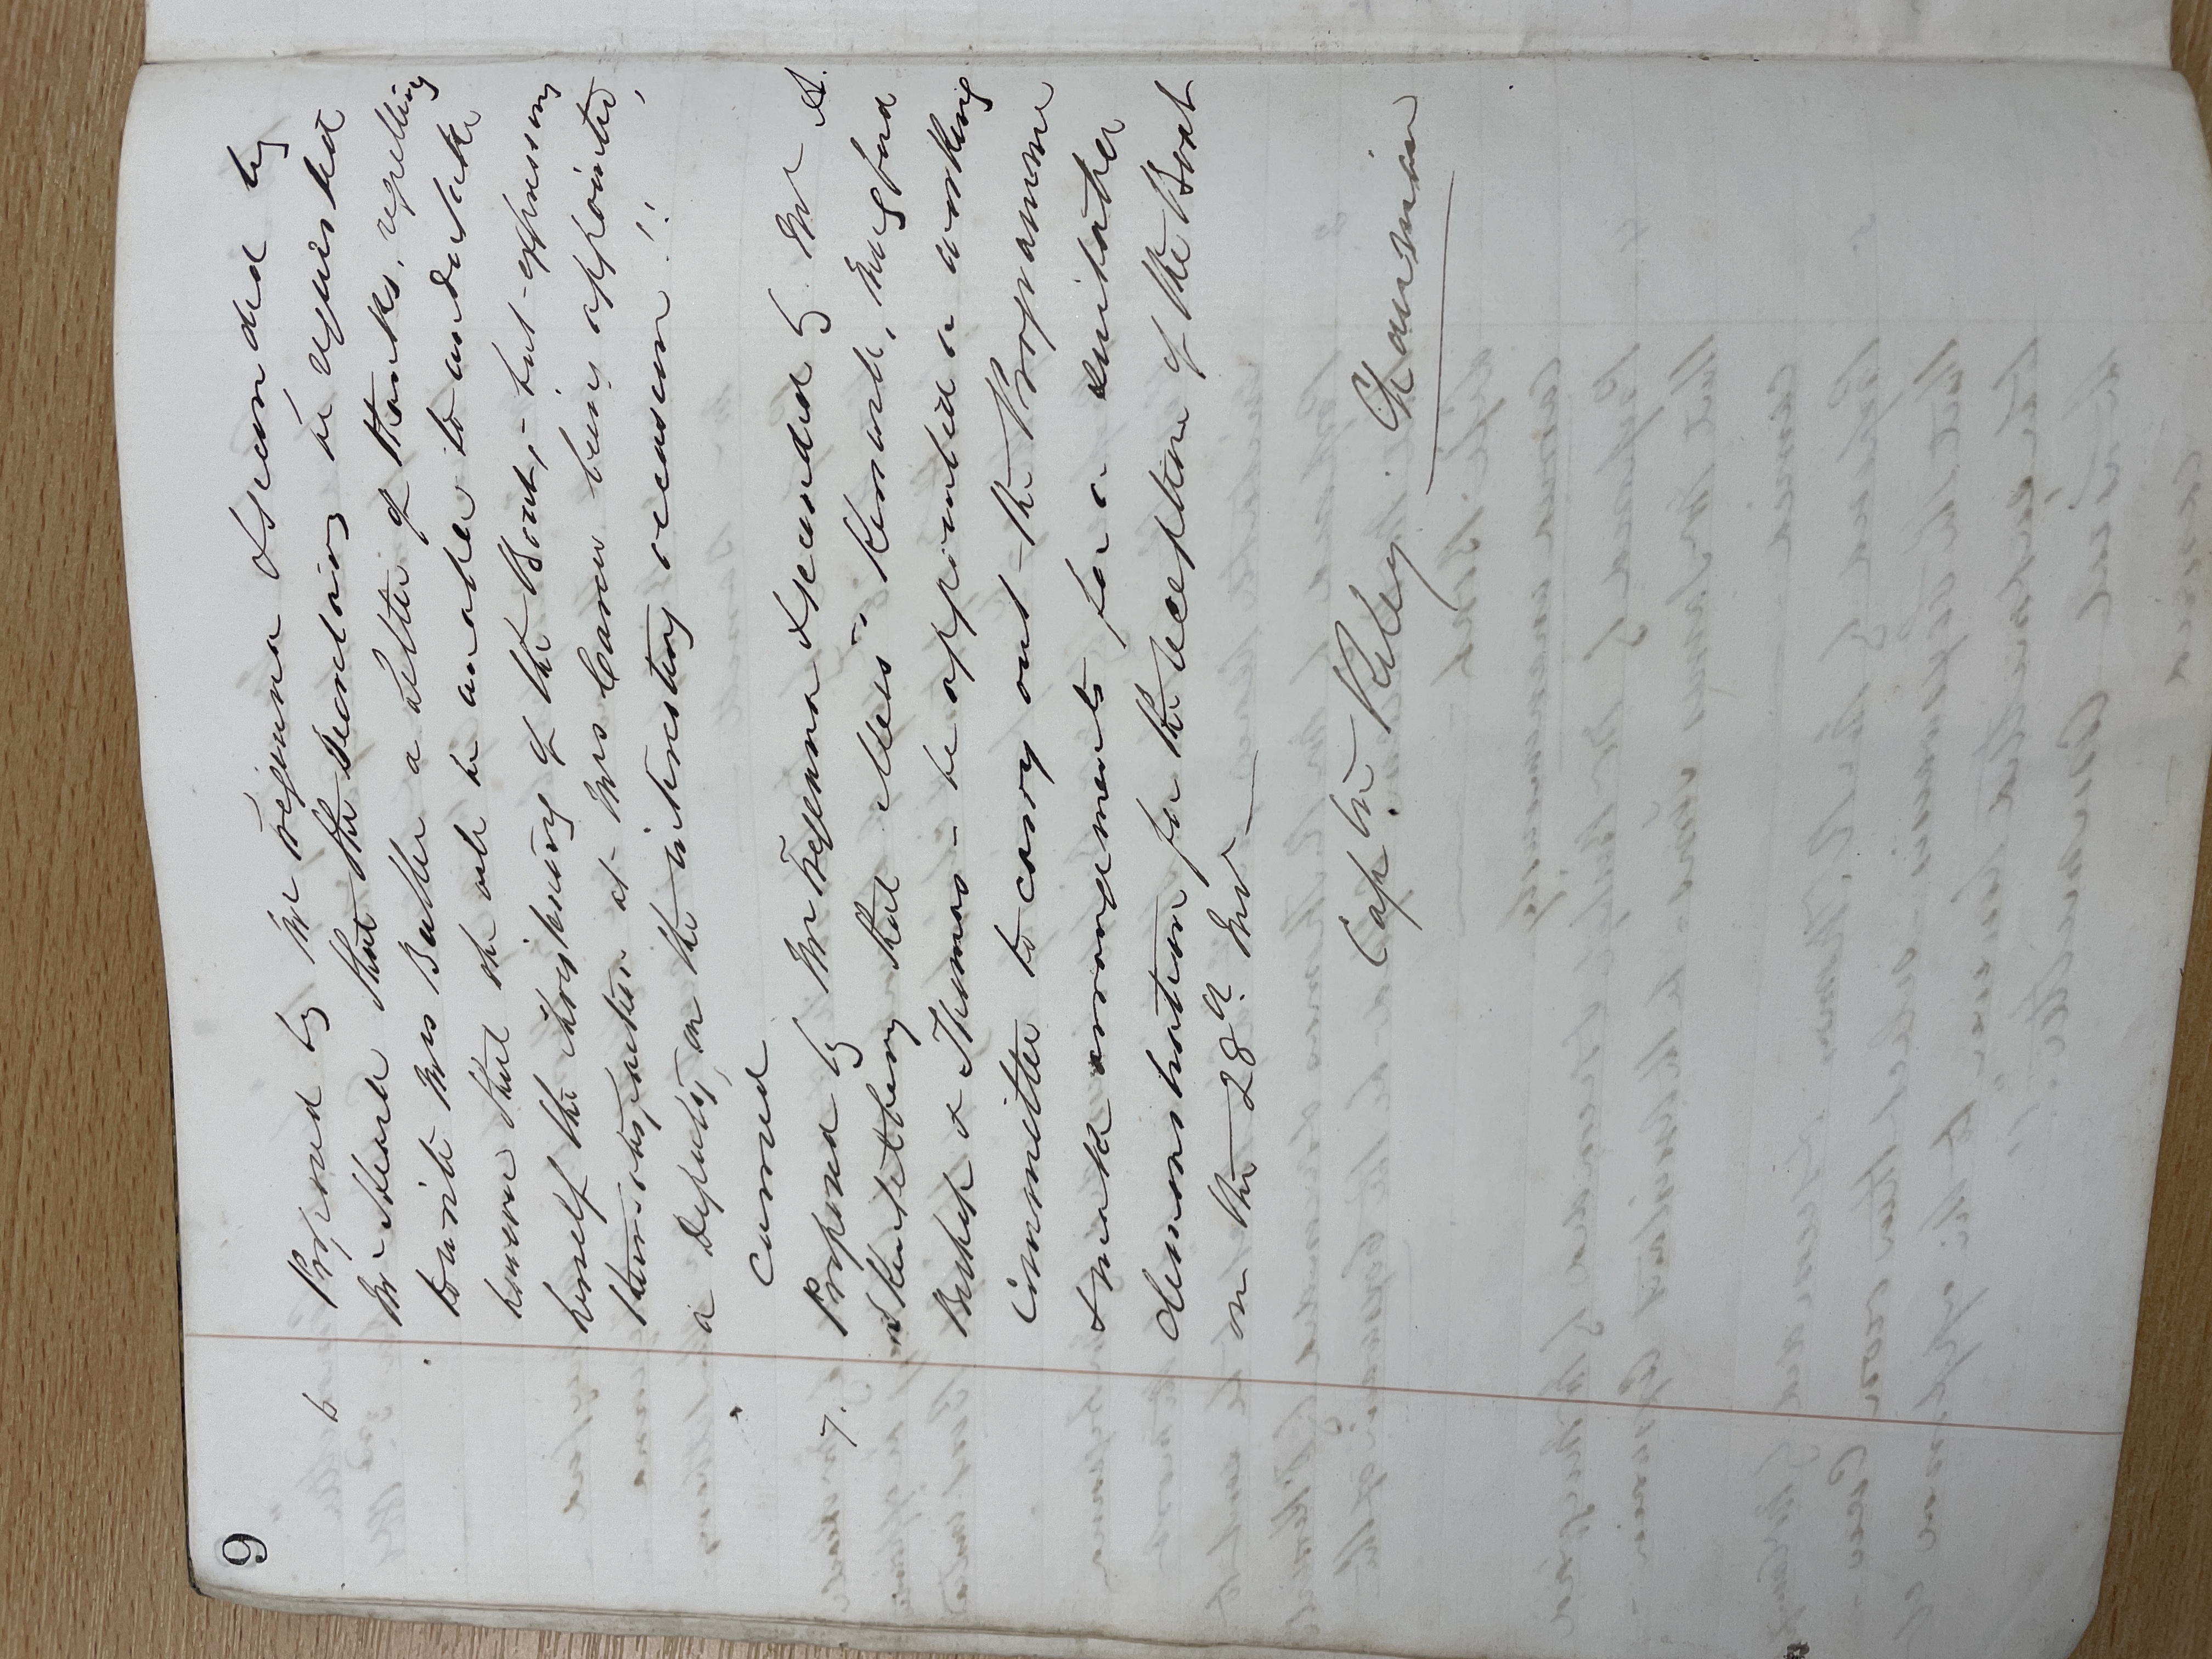 9
6 Proposed by Mr Tregenna & seconded by
Mr Steard that the Secretary be requested
to write Mrs Butler a letter of thanks, regretting
that she will be unable to undertake
herself the christening of the Boat, - but expressing
their satisfaction at Mrs Carne being appointed,
a Deputy, on the interesting occasion !!
Carried
7. Proposed by Mr Tregenna & seconded by Mr A.
that Mess<sup>rs</sup>
Bishop & Thomas - be appointed a working
Committee to carry out the Programme
& make arrangements for a suitable
demonstration for the reception of the Boat
on the 28th Inst
Cap<sup>tn</sup> Chairman